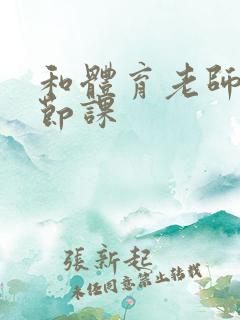 和體育老師
節課
張新起
未經同意禁止轉載